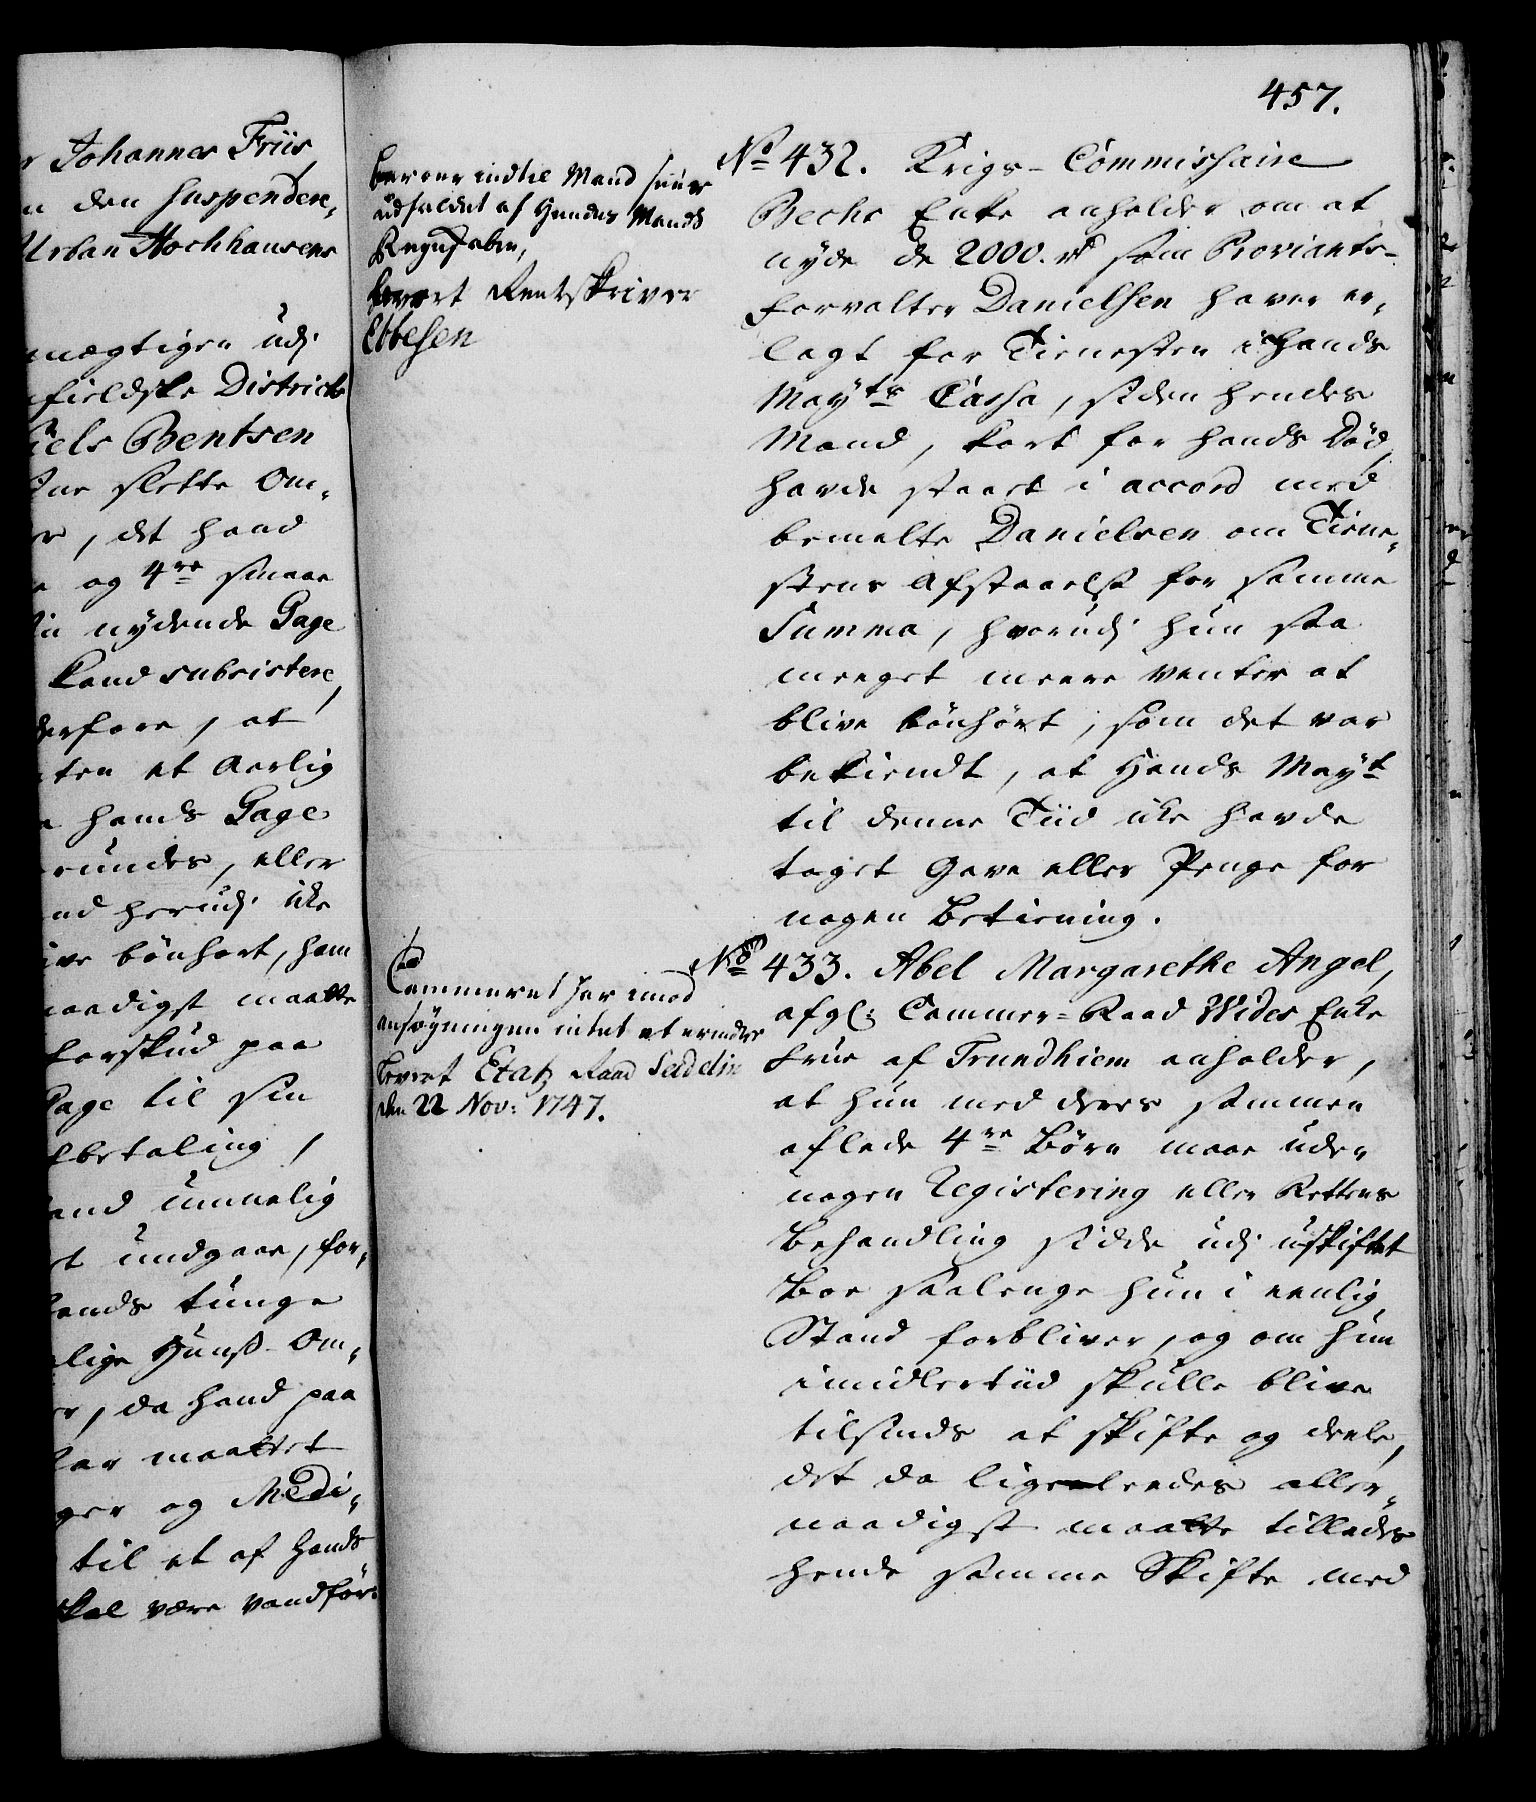 r Johannes Friis
n den suspendere,
Urban Hochhausens
mægtigen udj
fieldske Districts
iels Bentsen
slette Om,
r, det hand
og 4re smaae
nydende Gage
kand subsistere,
derfore, at
et Aarlig
hands Gage
eller
nd herudj ike
ive bönhørt, ham
naadigst maatte
forskud paa
Gage til sin
betaling,
and
t undgaae, for,
hands tunge
lige Huuß-Om,
r, da hand paa
har maattet
ger og Medi,
til et af hands
skal være vandför.
457.
beroer indtil Mand seer
udfaldet af hendes Mands
Regnskaber,
levert Rentskriver
Ebbesen
No 432. Krigs-Commissaire
Bechs Enke anholder om at
nyde de 2000. rd som Proviants-
forvalter Danielsen haver er,
lagt for Tienesten i hands
Mayts Cassa, siden hendes
Mand, kort for hands Död,
havde staaet i accord med
bemelte Danielsen om Tiene,
stens Afstaaelse for samme
Summa, hvorudj hun saa
meeget meere venter at
blive bönhört, som det var
bekiendt, at Hands Mayt
til denne Tiid ike havde
taget Gave eller Penge for
nogen Betiening.
Cammeret har imod
ansøgningen intet at erindre
levert Etatz Raad Seidelin
den 22 Nov: 1747.
No 433. Abel Margarethe Angel,
afgl: Cammer-Raad Wides Enke
Frue af Trundhiem anholder,
at hun med deres sammen
aflede 4re Börn maae uden
nogen Registering eller Rettens
Behandling sidde udj uskiftet
Boe saalenge hun i eenlig
Stand forbliver, og om hun
imidlertiid skulle blive
tilsinds at skifte og deele,
det da ligeleedes aller,
naadigst maatte tillades
hende samme Skifte med